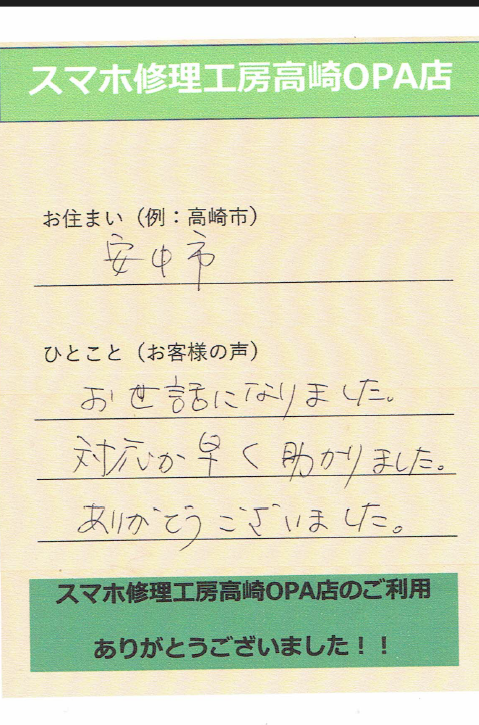 スマホ修理工房高崎OPA店
お住まい（例：高崎市）
安中市
ひとこと（お客様の声）
お世話になりました。
対応が早く助かりました。
ありがとうございました。
スマホ修理工房高崎OPA店のご利用
ありがとうございました！！